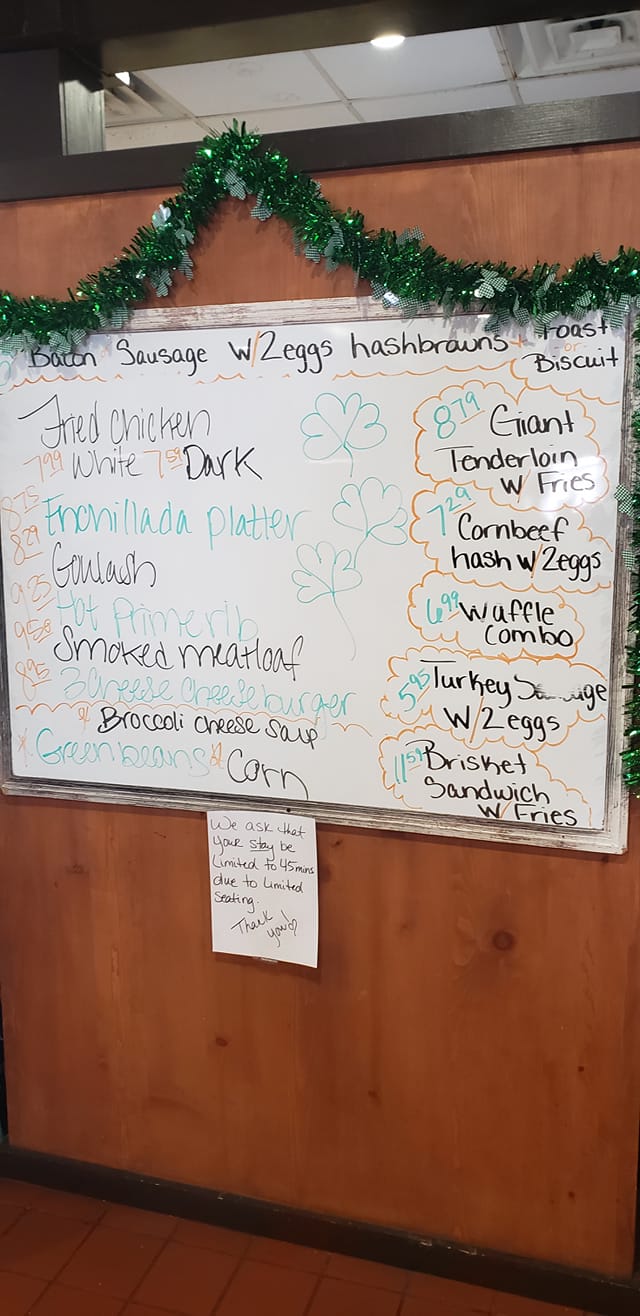 Bacon Sausage W/2eggs hashbrowns + Toast
or
Biscuit
Fried chicken
7.99 White 7.59 Dark
8.75 Enchillada platter
8.29 Goulash
9.25 Hot Prime rib
9.50 Smoked meatloaf
8.95 3 Cheese cheeseburger
* Broccoli cheese soup
* Green beans * Corn
8.79 Giant
Tenderloin
W/ Fries
7.29 Cornbeef
hash w/2eggs
6.99 Waffle
Combo
5.95 Turkey
W/2eggs
11.59 Brisket
Sandwich
W/ Fries
We ask that
your stay be
Limited to 45 mins
due to Limited
Seating.
Thank
you!